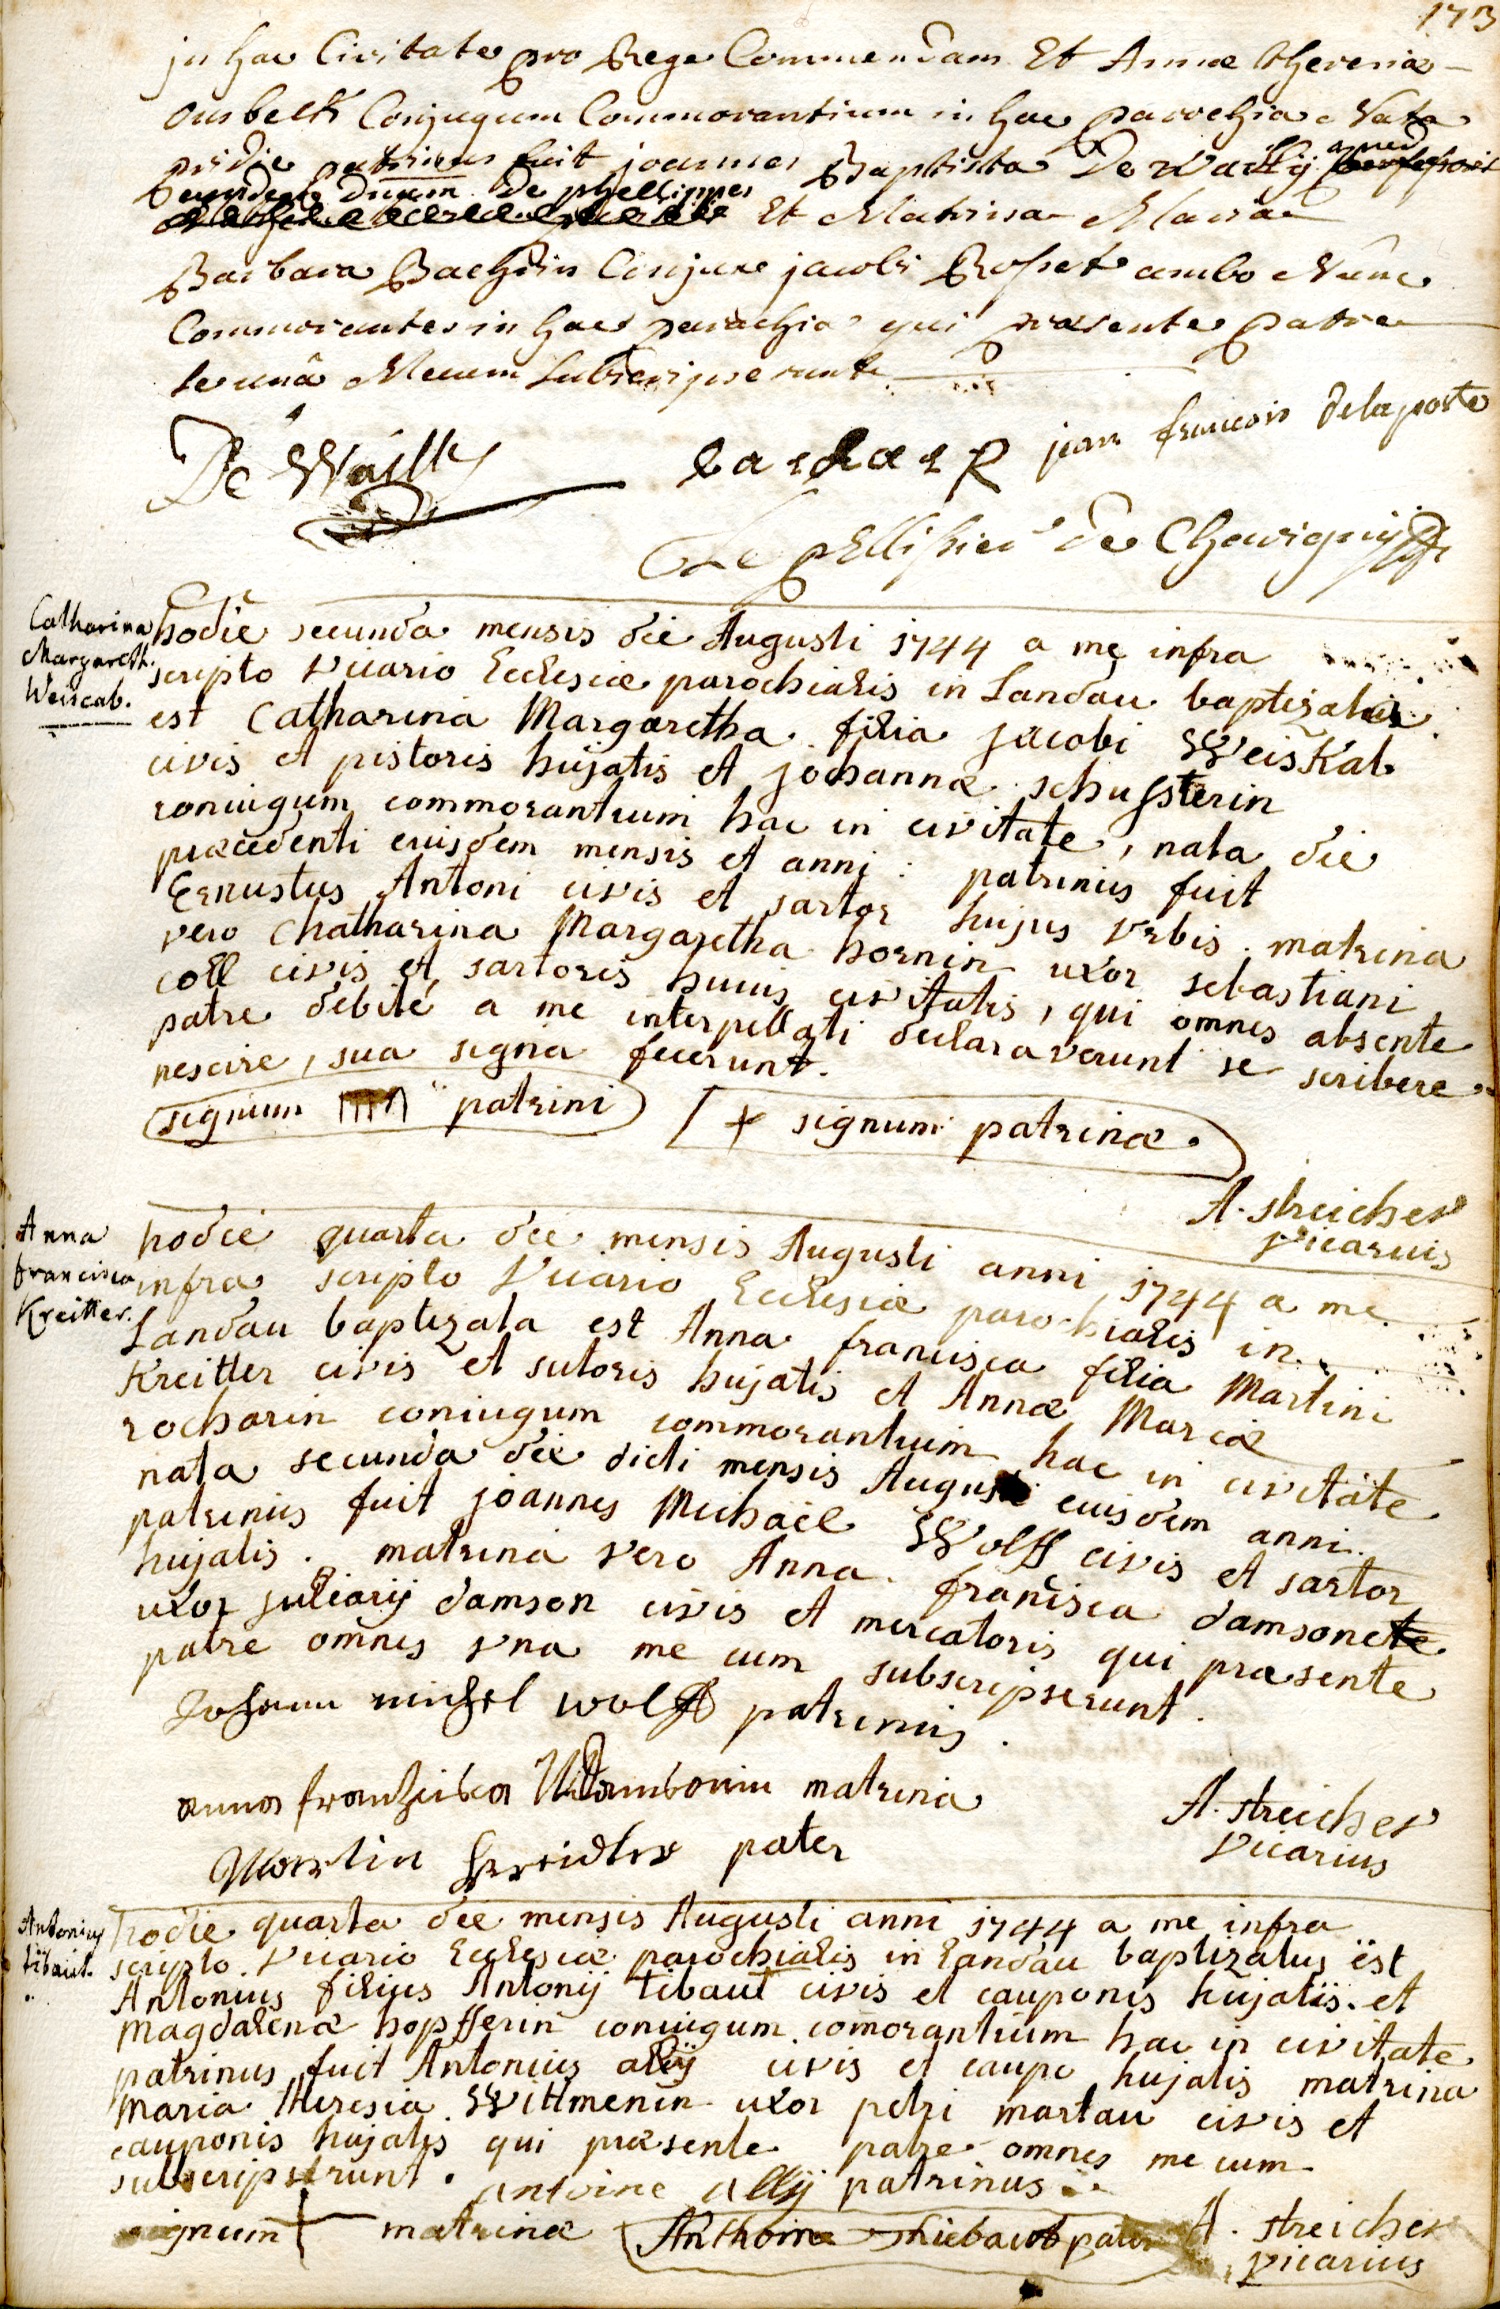 173
in hac Civitate pro Rege Commendam Et Annæ theresiæ
Ousbelk Conjugum Commorantium in hac parochia Nata
pridie patrinus fuit joannes Baptista De Wailly apud
eumdem Ducem De phellippes Et Matrina Maria
Barbara Bachin Conjuxe jacobi Rosset ambo Nunc
Commorantes in hac parochia qui præsente patre
se unâ Mecum Subscripserunt
De Wailly
jean francois delaporte
Le pellissier De Chavigny
Catharina
Margareth.
Weiscab.
hodie secunda mensis die Augusti 1744 a me infra
scripto Vicario Ecclesiæ parochialis in Landau baptizata
est Catharina Margaretha filia jacobi Weiskab
civis et pistoris hujatis et johannæ schussterin
coniugum commorantium hac in civitate, nata die
præcedenti eiusdem mensis et anni: patrinus fuit
Ernustus Antoni civis et sartor hujus Urbis. matrina
vero Chatharina Margaretha hornin uxor sebastiani
coll civis et sartoris huius civitatis, qui omnes absente
patre debite a me interpellati declaraverunt se scribere
nescire, sua signa fecerunt.
signum patrini + signum patrinæ.
A. streicher
vicarius
Anna
francisca
Kreitter.
hodie quarta die mensis Augusti anni 1744 a me
infra scripto Vicario Ecclesiæ parochialis in
Landau baptizata est Anna francisca filia Martini
Kreitter civis et sutoris hujatis et Annæ Mariæ
rocharin coniugum commorantium hac in civitate
nata secunda die dicti mensis Augusti eiusdem anni.
patrinus fuit joannes Michaël Wolff civis et sartor
hujatis. matrina vero Anna francisca damsonete
uxor juliarij damson civis et mercatoris qui præsente
patre omnes vna me cum subscripserunt.
Johann michel wolff patrinus.
anna franziska damsonin matrina
Martin Kreidler pater
A. streicher
vicarius
Antonius
tibaut.
hodie quarta die mensis Augusti anni 1744 a me infra
scripto Vicario Ecclesiæ parochialis in Landau baptizatus est
Antonius filius Antonij tibaut civis et cauponis hujatis. et
Magdalenæ hopfferin coniugum comorantium hac in civitate
patrinus fuit Antonius allij civis et caupo hujatis matrina
Maria theresia Wittmenin uxor petri martau civis et
cauponis hujatis qui præsente patre omnes me cum
subscripserunt.
antoine allij patrinus
signum + matrinæ Anthoine thiebaut pater
A. streicher
vicarius